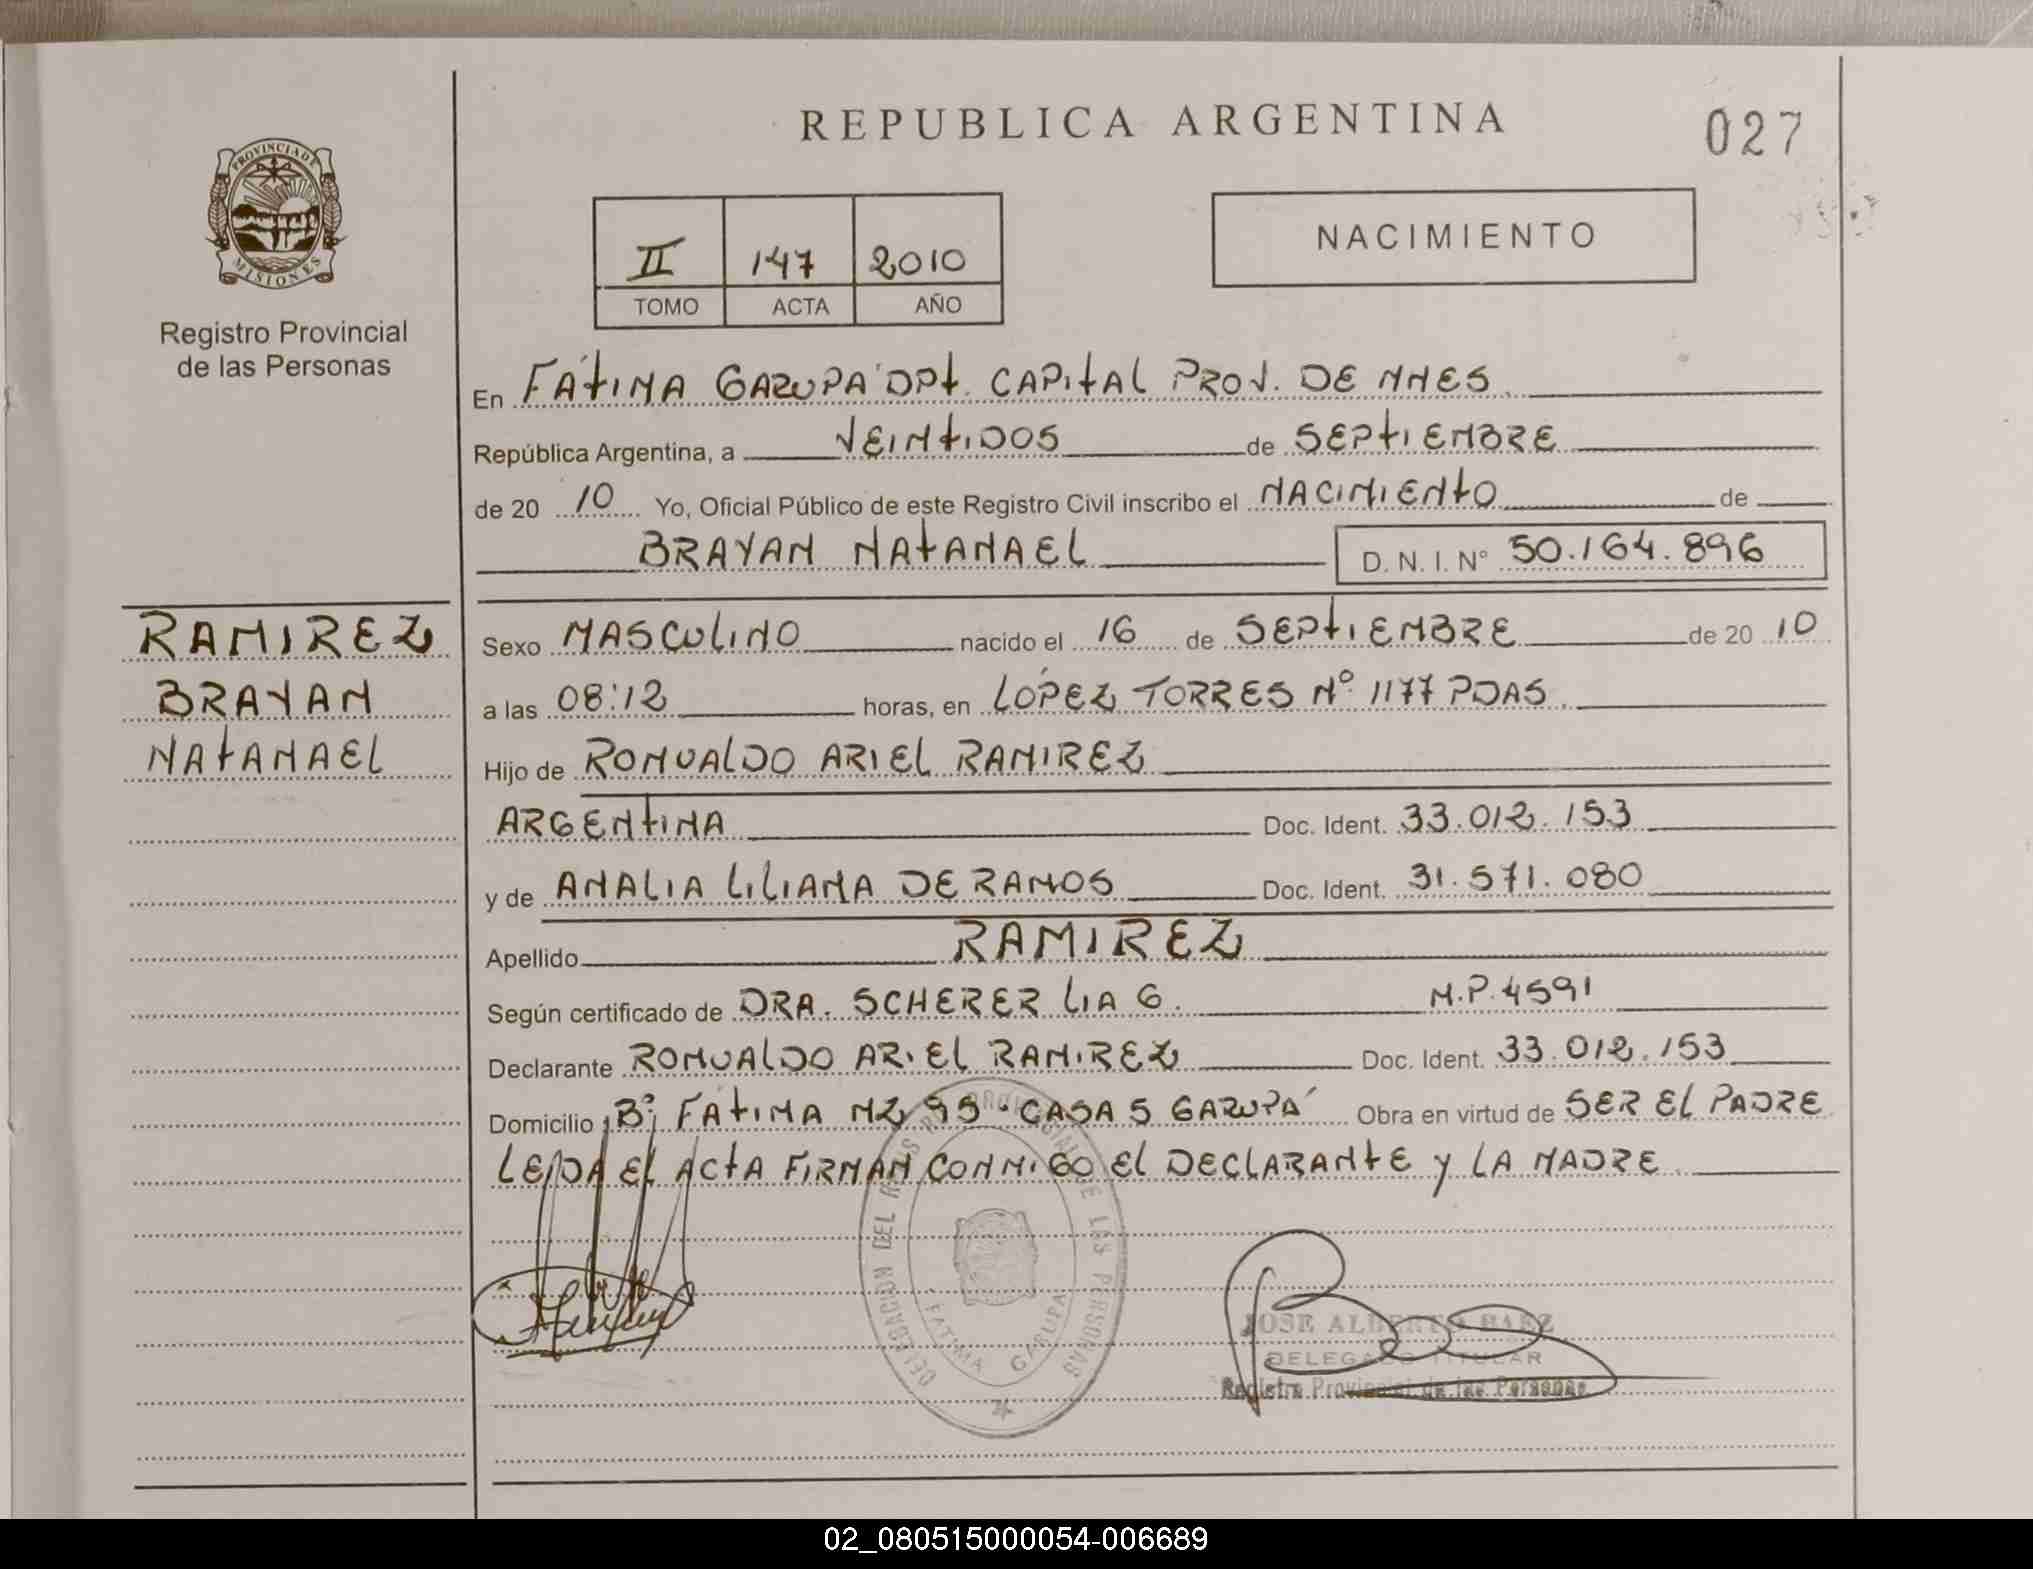 REPUBLICA ARGENTINA
027
PROVINCIA DE
MISIONES
Registro Provincial
de las Personas
II 147 2010
TOMO ACTA AÑO
NACIMIENTO
En FÁTIMA GARUPA DPt. CAPITAL PROV. DE MNES
República Argentina, a VEINTIDOS de SEPTIEMBRE
de 20 10 Yo, Oficial Público de este Registro Civil inscribo el NACIMIENTO de
BRAYAN NATANAEL D. N. I. N° 50.164.896
RAMIREZ
BRAYAN
NATANAEL
Sexo MASCULINO nacido el 16 de SEPTIEMBRE de 20 10
a las 08:12 horas, en LÓPEZ TORRES Nº 1177 PDAS.
Hijo de ROMUALDO ARIEL RAMIREZ
ARGENTINA Doc. Ident. 33.012.153
y de ANALIA LILIANA DE RAMOS Doc. Ident. 31.571.080
Apellido RAMIREZ
Según certificado de DRA. SCHERER LIA G. M.P. 4591
Declarante ROMUALDO ARIEL RAMIREZ Doc. Ident. 33.012.153
Domicilio Bº FÁTIMA MZ 95 - CASA 5 GARUPÁ Obra en virtud de SER EL PADRE
LEIDA EL ACTA FIRMAN CONMIGO EL DECLARANTE Y LA MADRE
DELEGACION DEL REGIS PROVINCIAL DE LAS PERSONAS
FATIMA GARUPA
JOSE ALBERTO BAEZ
DELEGADO TITULAR
Registro Provincial de las Personas
02_080515000054-006689